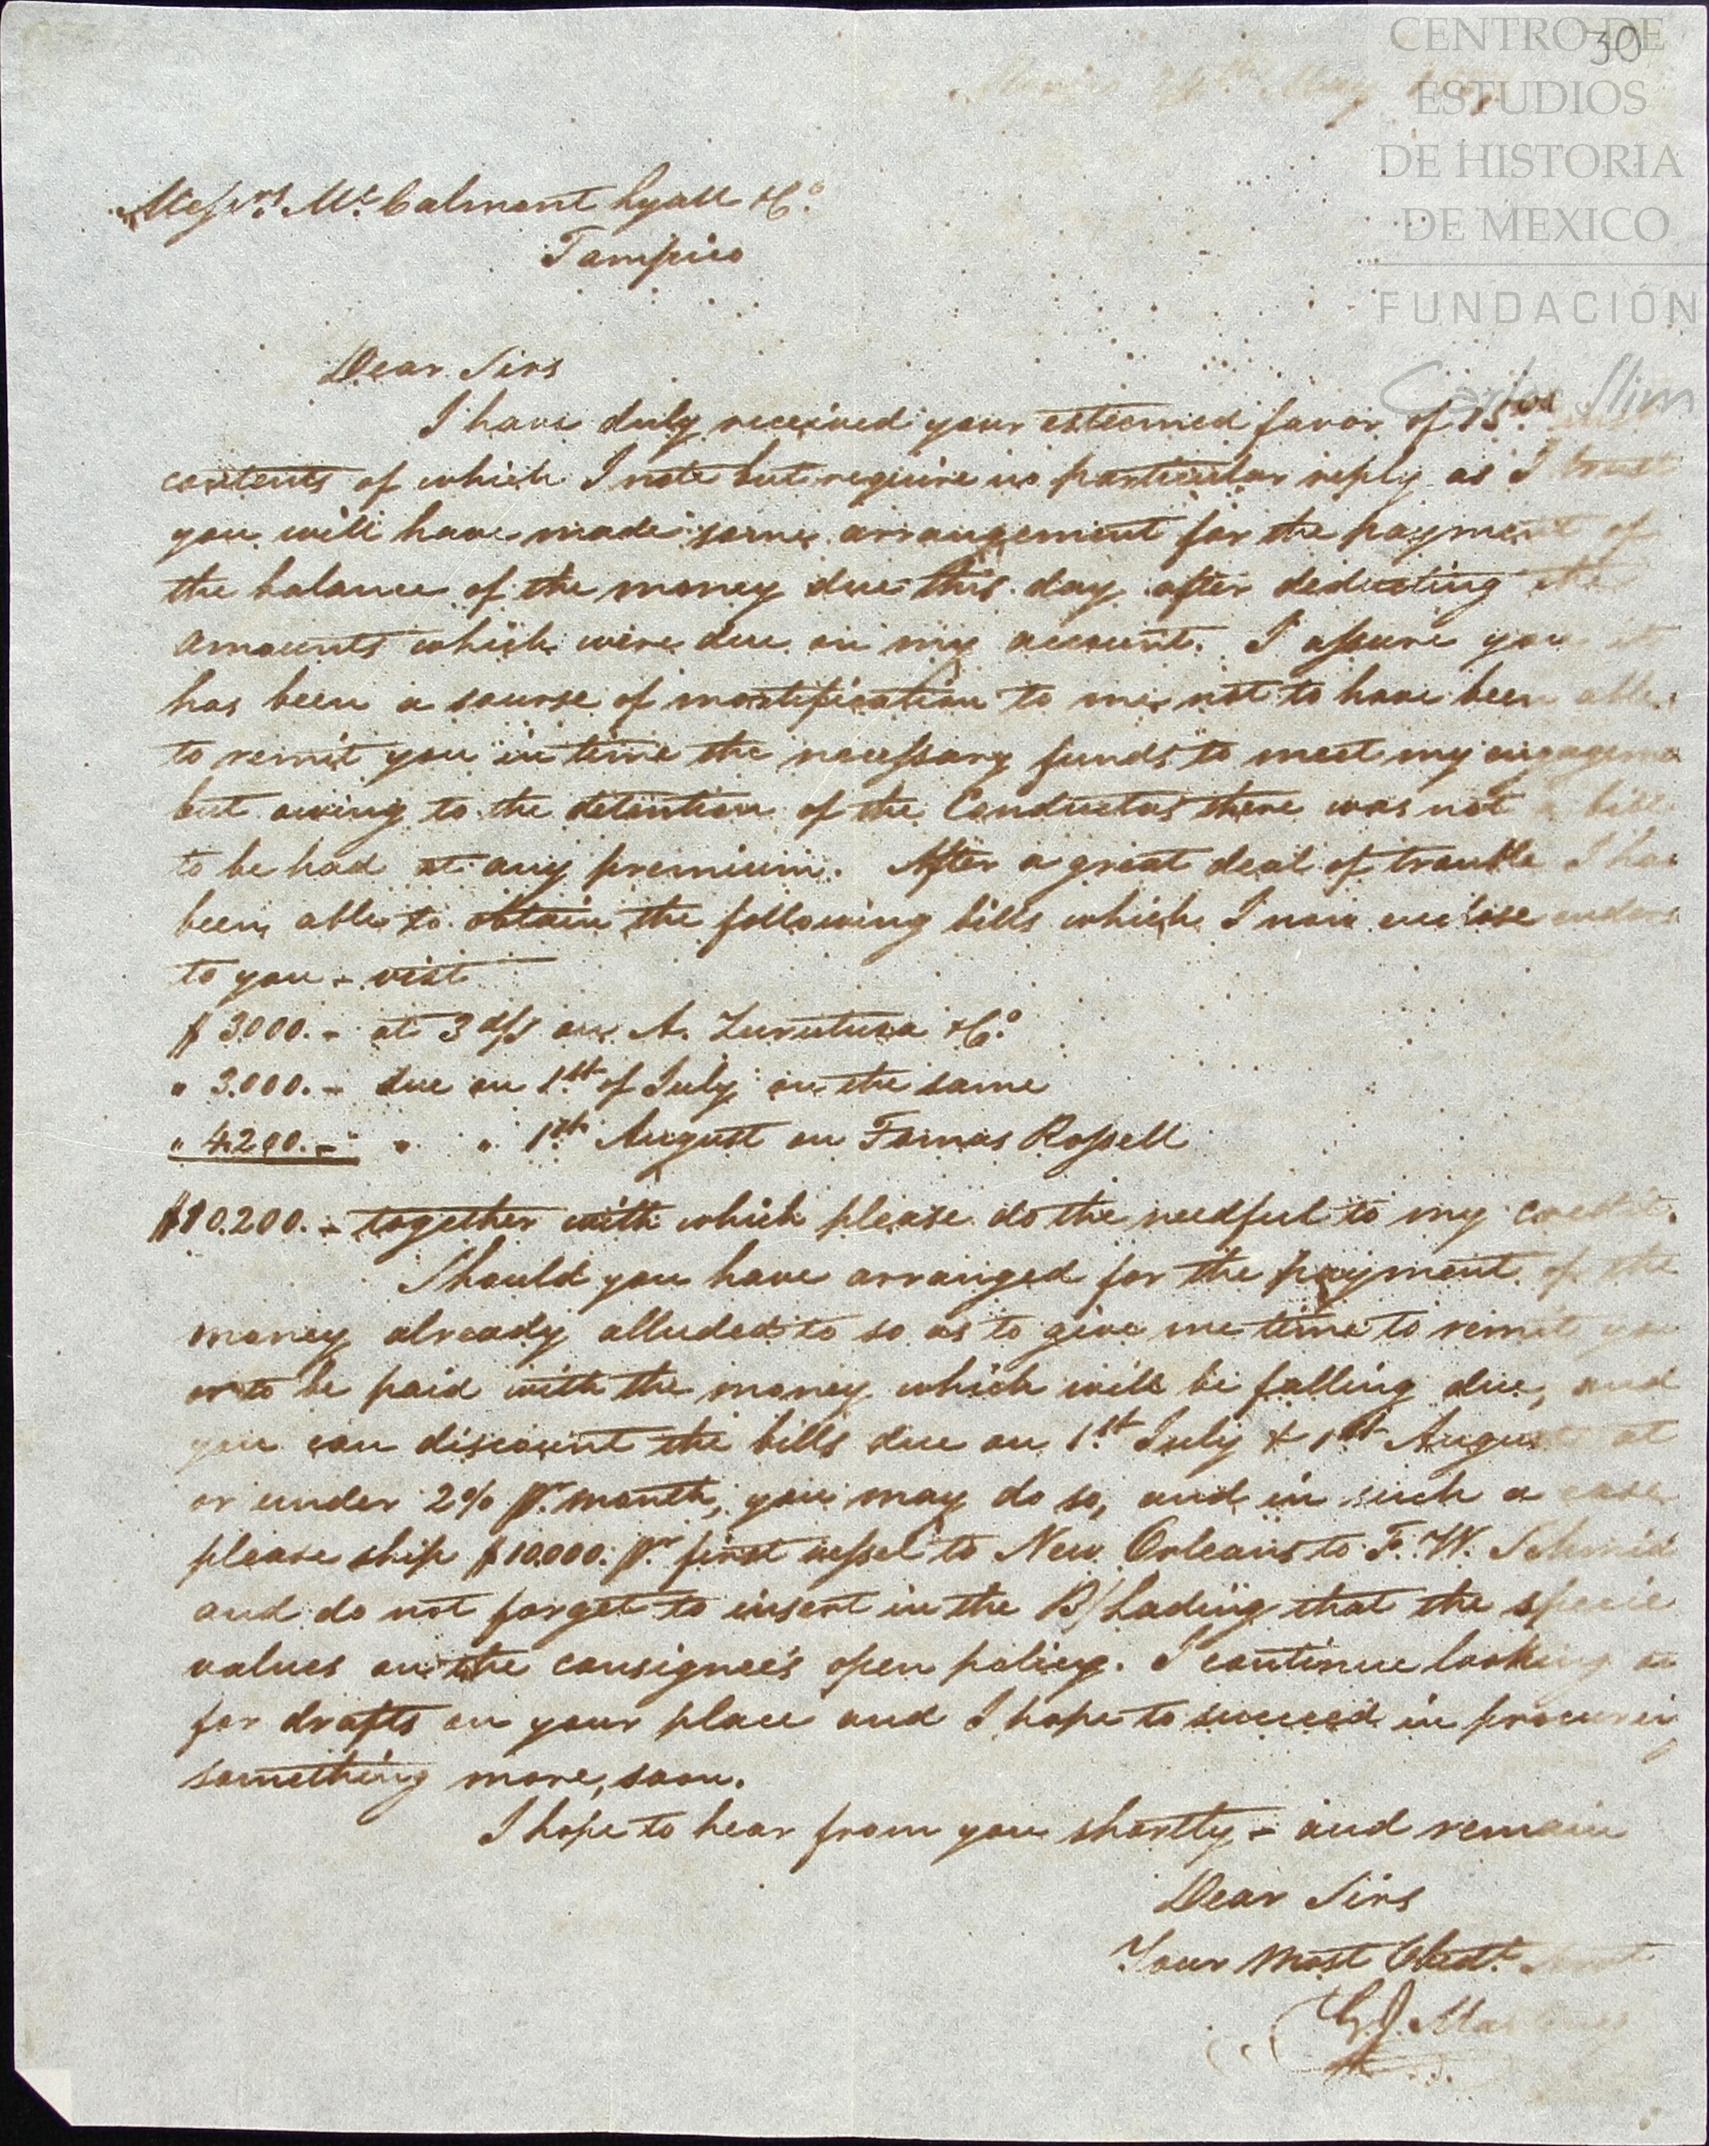 30
CENTRO DE
ESTUDIOS
DE HISTORIA
DE MEXICO
FUNDACIÓN
Carlos Slim
May
Messrs. Mc.Calmont Lyall & Co.
Tampico
Dear Sirs
I have duly received your esteemed favor of 15th
contents of which I note but require no particular reply as I trust
you will have made some arrangement for the payment of
the balance of the money due this day after deducting the
amounts which were due on my account. I assure you it
has been a sourse of mortification to me not to have been able
to remit you in time the necessary funds to meet my engageme
but owing to the detention of the Conductas there was not a bill
to be had at any premium. After a great deal of trouble I have
been able to obtain the following bills which I now enclose endors
to you - vist
$ 3000.- at 3 d/s on A. Zurutuza & Co.
" 3.000.- due on 1st. of July on the same
" 4.200.- " " 1st. August on Tomas Rossell
$10.200.- together with which please do the needful to my credit.
Should you have arranged for the payment of the
money already alluded to so as to give me time to remit you
or to be paid with the money which will be falling due, and
you can discount the bills due on 1st. July & 1st August at
or under 2% pr. month, you may do so, and in such a case
please ship $10.000. pr. first vessel to New Orleans to F. W. Schmid
and do not forget to insert in the B/Lading that the specie
values on the consignee's open policy. I continue looking
for drafts on your place and I hope to succeed in procurin
something more, soon.
I hope to hear from you shortly - and remain
Dear Sirs
Your Most Obedt. Servt
G. J. Martinez